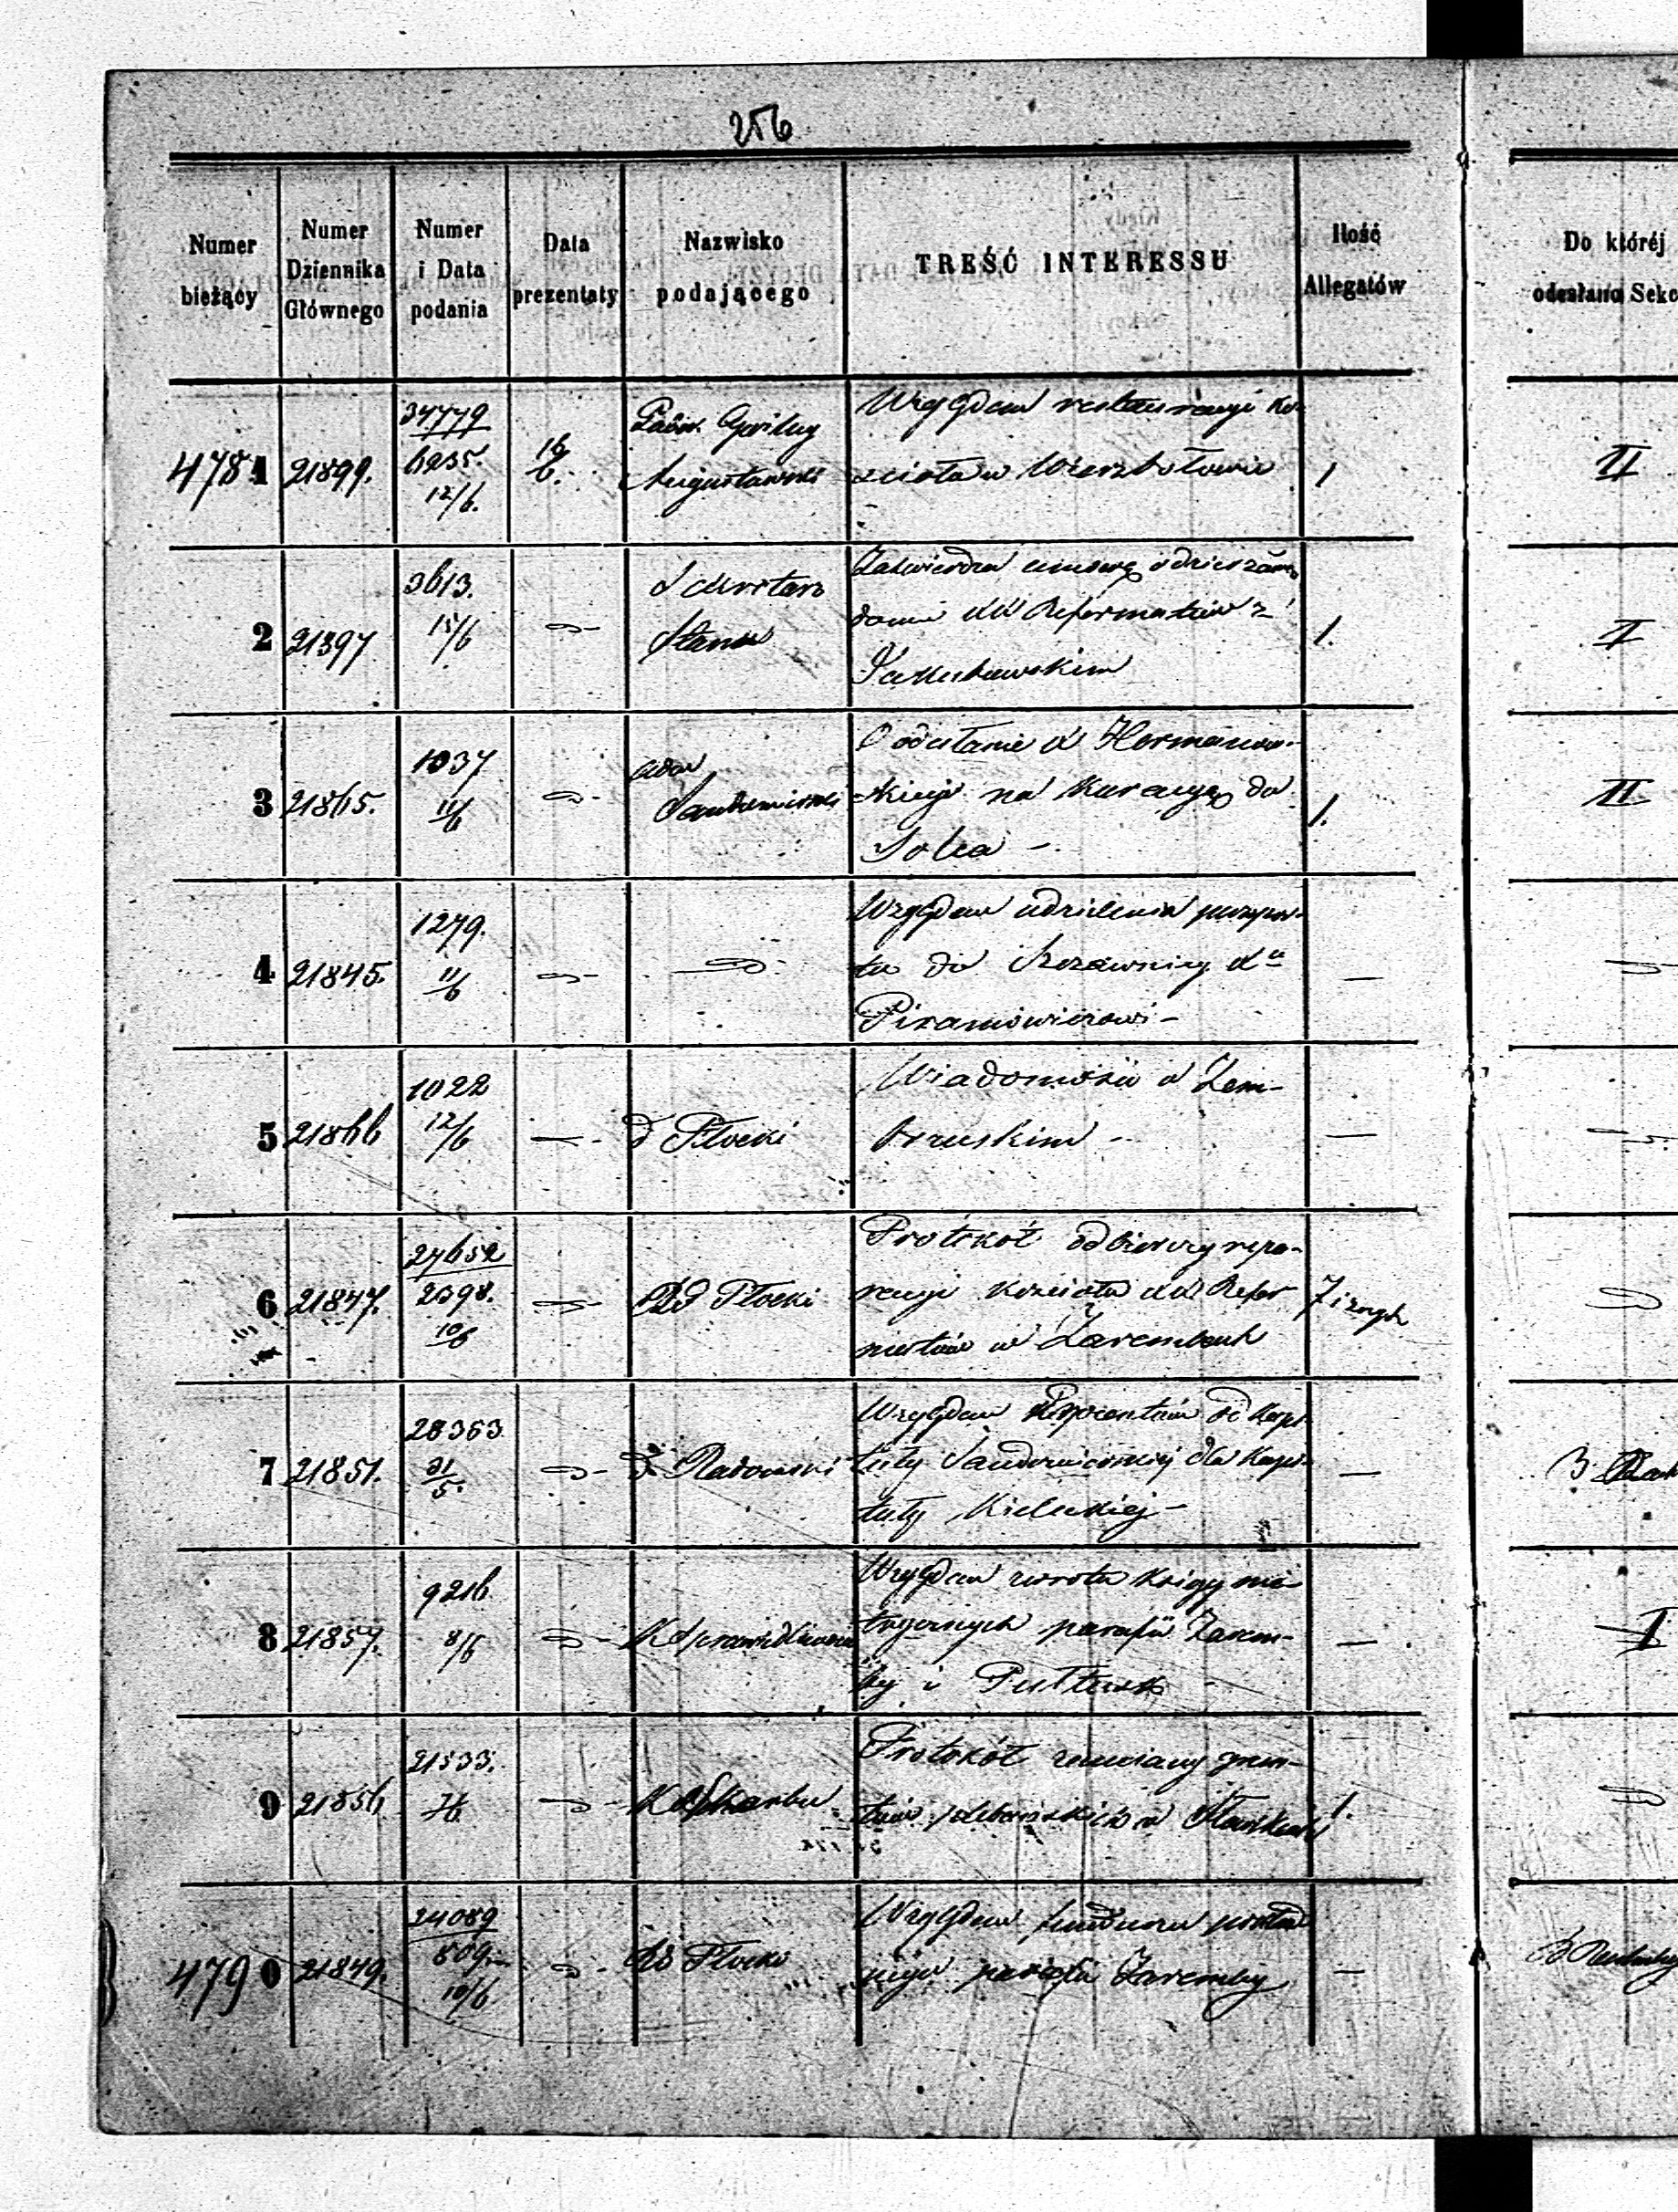 256
Numer bieżący
Numer Dziennika Głównego
Numer i Data podania
Data prezentaty
Nazwisko podającego
TREŚĆ INTERESSU
Ilość Allegatów
Do któréj odesłano Sekc
4781 21899. 34779 6235. 12/6. 16/6. Augustowski
Względem restauracyi ko-
ścioła w Wierzbołowie
1 II
2 21397 3613. 15/6 Sekretarz Stanu
Zatwierdza umowę o dzierżawę
domu XX Reformatów z
Jakubowskim
1. II
3 21865. 1037 11/6 Sandomierski
O odesłanie X Hermanow-
skiego na kuracyę do
Solca –
1. II
4 21845. 1279. 11/6
Względem udzielenia paszpor-
tu do Szczawnicy Xu
Piramowiczowi –
5 21866 1022 12/6 d Płocki
Wiadomości o Zem-
brzuskim –
6 21847. 27652 2398. 10/6 Płocki
Protokół odbiorczy repa-
racyi kościoła XX Refor
matów w Zarembach
7 21851. 28363 31/5. Radomski
Względem
tuły Sandomierskiej dla Kapi-
tuły Kieleckiej –
3
8 21857. 9216 8/6 K Sprawiedliwości
Względem zwrotu ksiąg me-
trycznych parafii Zarem-
by i Pułtusk
I
9 21856 21533. 7/6 K Skarbu
Protokół zamiany grun-
tów plebańskich w
1.
4790 21849. 24089 809 10/6 Płocki
Względem funduszu
parafii Zaremby